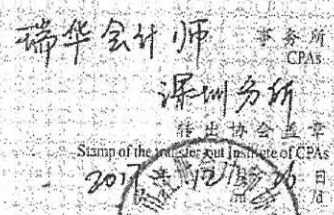 瑞华会计师 事务所
CPAs
深圳分所
转出协会盖章
Stamp of the transfer-out Institute of CPAs
2017年12月26日
/y /m /d